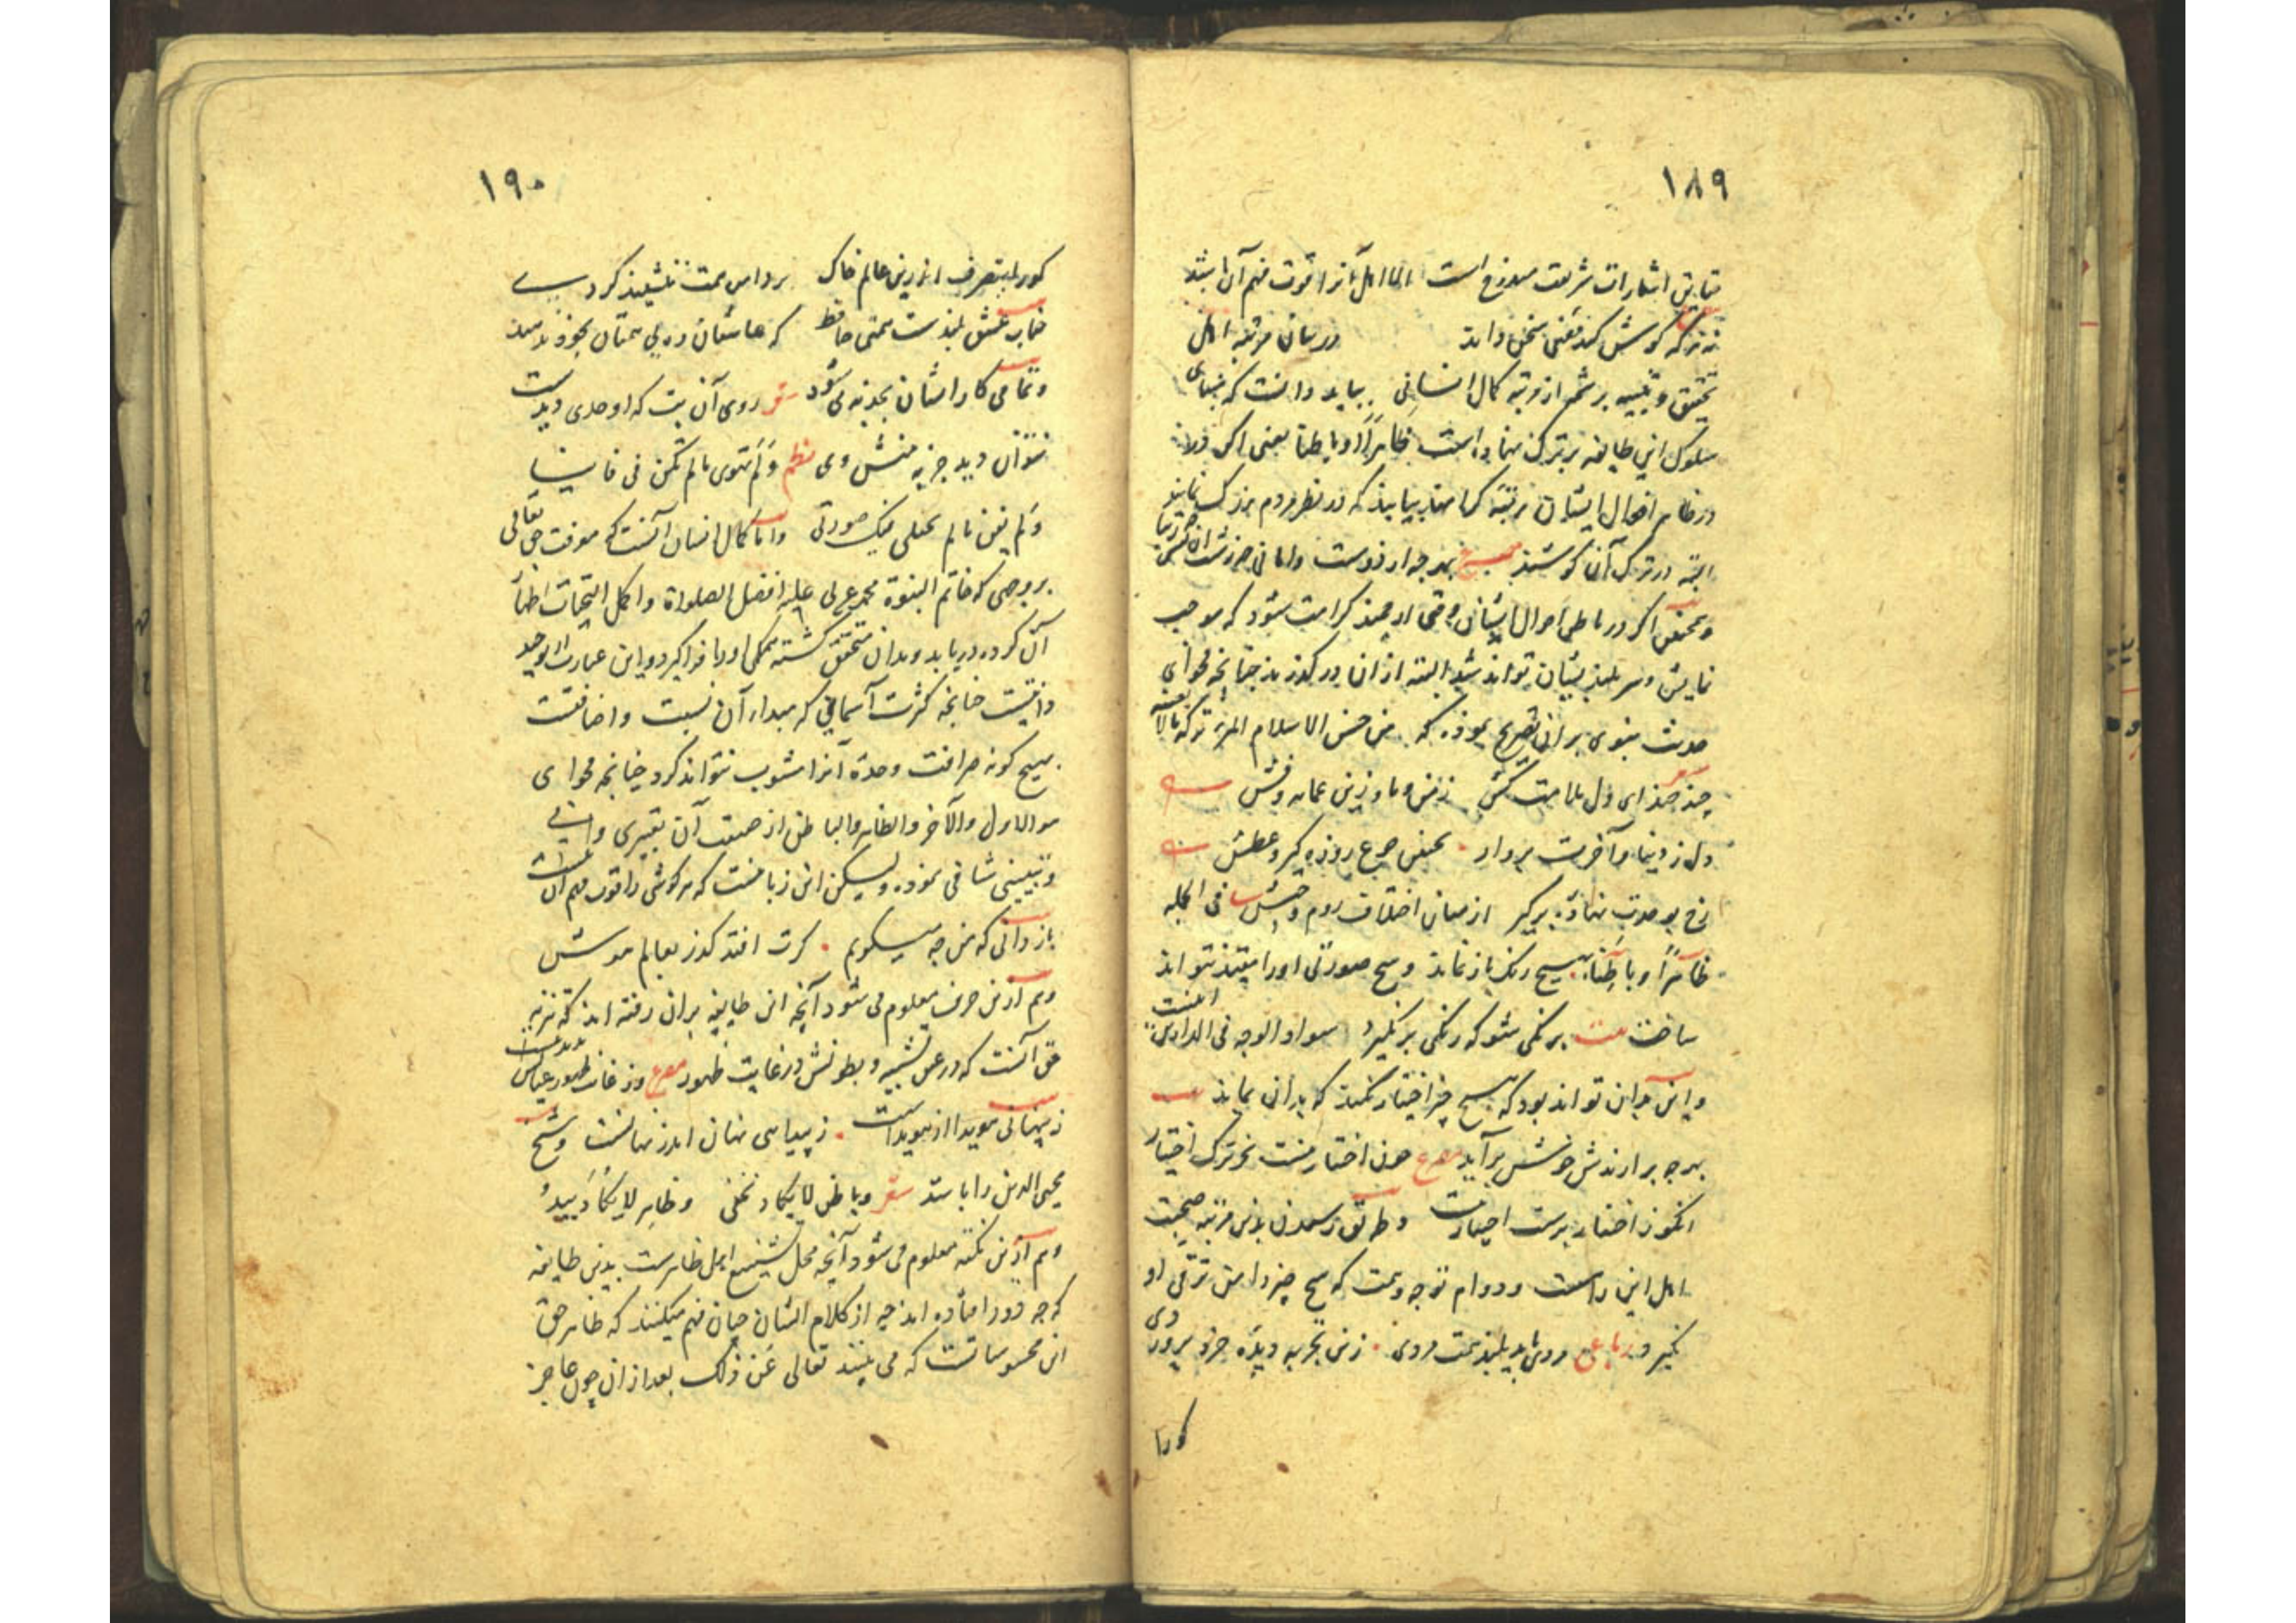 ۱۸۹
حقایق اشارات شریعت مندرج است اما اهل آنرا قوت فهم آن باشد
نه هر که گوش کند معنی سخن داند در بیان مرتبه اهل
تحقیق و تنبیه بر شمه از مرتبه کمال انسانی بباید دانست که بنای
سلوک این طایفه بر ترک نهاده است ظاهراً و باطنا یعنی اگر در
در ظاهر احوال ایشان مرتبه که در نظر مردم بزرک نماید
البته در ترک آن کوشند مصرع هرچه
و همچنین اگر در باطن احوال ایشان وقتی کرامت شود که موجب
نمایش و سر بلندی ایشان تواند شد البته از ان در گذرند چنانچه فحوای
حدیث نبوی بر ان تصریح نموده که من حسن الاسلام المرء ترکه مالا یعنیه
چند چند ای دل ملامت کش زین و ما و زین عمامه و فش
دل ز دنیا و آخرت بردار همچنین جوع روزه گیر و عطش
رخ بوحدت نهاده برگیر از میان اختلاف روم و حبش فی الجمله
ظاهراً و باطناً بهیچ رنک باز نماند و هیچ صورتی او را مقید نتواند
ساخت بیت برنگی شو که رنگی برنگیرد سواد الوجه فی الدارین اینست
و این بدان تواند بود که هیچ چیز اختیار نکند که بدان بماند
هرچه برارندش خوش برآید مصرع چون اختیار منست ترک اختیار
اکنون اختیار بدست اختیار تست و طریق رسیدن بدین مرتبه صحبت
اهل این راهست و دوام توجه و همت که هیچ چیز دامن ترقی او
نگیرد رباعی مردی باید بلند همت مردی زین تجربه دیده خرد پروردی
کورا
۱۹۰
کورا بتصرف اندرین عالم خاک بر دامن همت ننشیند گردی
جناب عشق بلندست همتی حافظ که عاشقان ره بی همتان بخود ندهند
و تمامی کار ایشان بجذبه می شود شعر روی آن بت که اوحدی دیدست
نتوان دید جز به منش وی نظم و لم تهوی ما لم تکن فی فانیا
و لم تفن ما لم تجتلی فیک صورتی و اما کمال انسان آنست که معرفت حق تعالی
بر وجهی که خاتم النبوة محمد عربی علیه افضل الصلواة و اکمل التحیات اظهار
آن کرده دریابد و بدان متحقق گشته همگی او را فرا گیرد و این عبارت از توحید
ذاتیست چنانچه کثرت آسمائی که مبداء آن نسبت و اضافتست
بهیچ گونه صرافت وحدة آنرا مشوب نتواند کرد چنانچه فحوای
هو الاول والآخر والظاهر والباطن از حقیقت آن تعبیری وافی
و تبیینی شافی نموده و لیکن این زبانست که هر گوشی را قوت فهم آن نیست
باز دانی که من چه میگویم گرت افتد گذر بعالم هوش
و هم از ین حرف معلوم می شود آنچه این طایفه بران رفته اند که تنزیه
حق آنست که در عین تشبیه و بطونش در غایت ظهور مصرع وز غایت ظهور عیانش پدید نیست
ز پنهانی هویدا از هویداست ز پیدایی نهان اندر نهانست و شیخ
محیی الدین را باشد شعر و باطن لا یکاد یخفی و ظاهر لا یکاد یبدو
و هم ازین نکته معلوم می شود آنچه محل تشنیع اهل ظاهرست بدین طایفه
که چه دور افتاده اند چه از کلام ایشان چنان فهم میکنند که ظاهر حق
این محسوساتست که می بینند تعالی عن ذلک بعد از ان چون عاجز